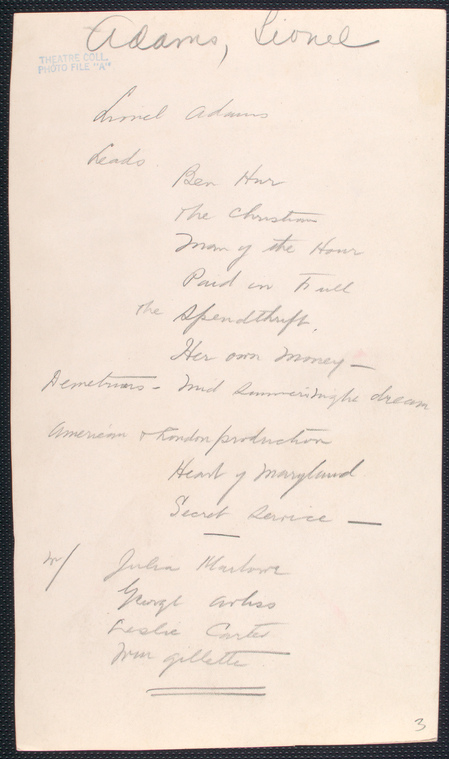 Adams, Lionel
THEATRE COLL.
PHOTO FILE "A"
Lionel Adams
Leads
Ben Hur
The Christian
Man of the Hour
Paid in Full
The Spendthrift.
Her own Money —
Demetrius - Mid Summer Night dream
American & London production
Heart of Maryland
Secret Service —
w/ Julia Marlowe
George Arliss
Leslie Carter
Wm Gillette
3